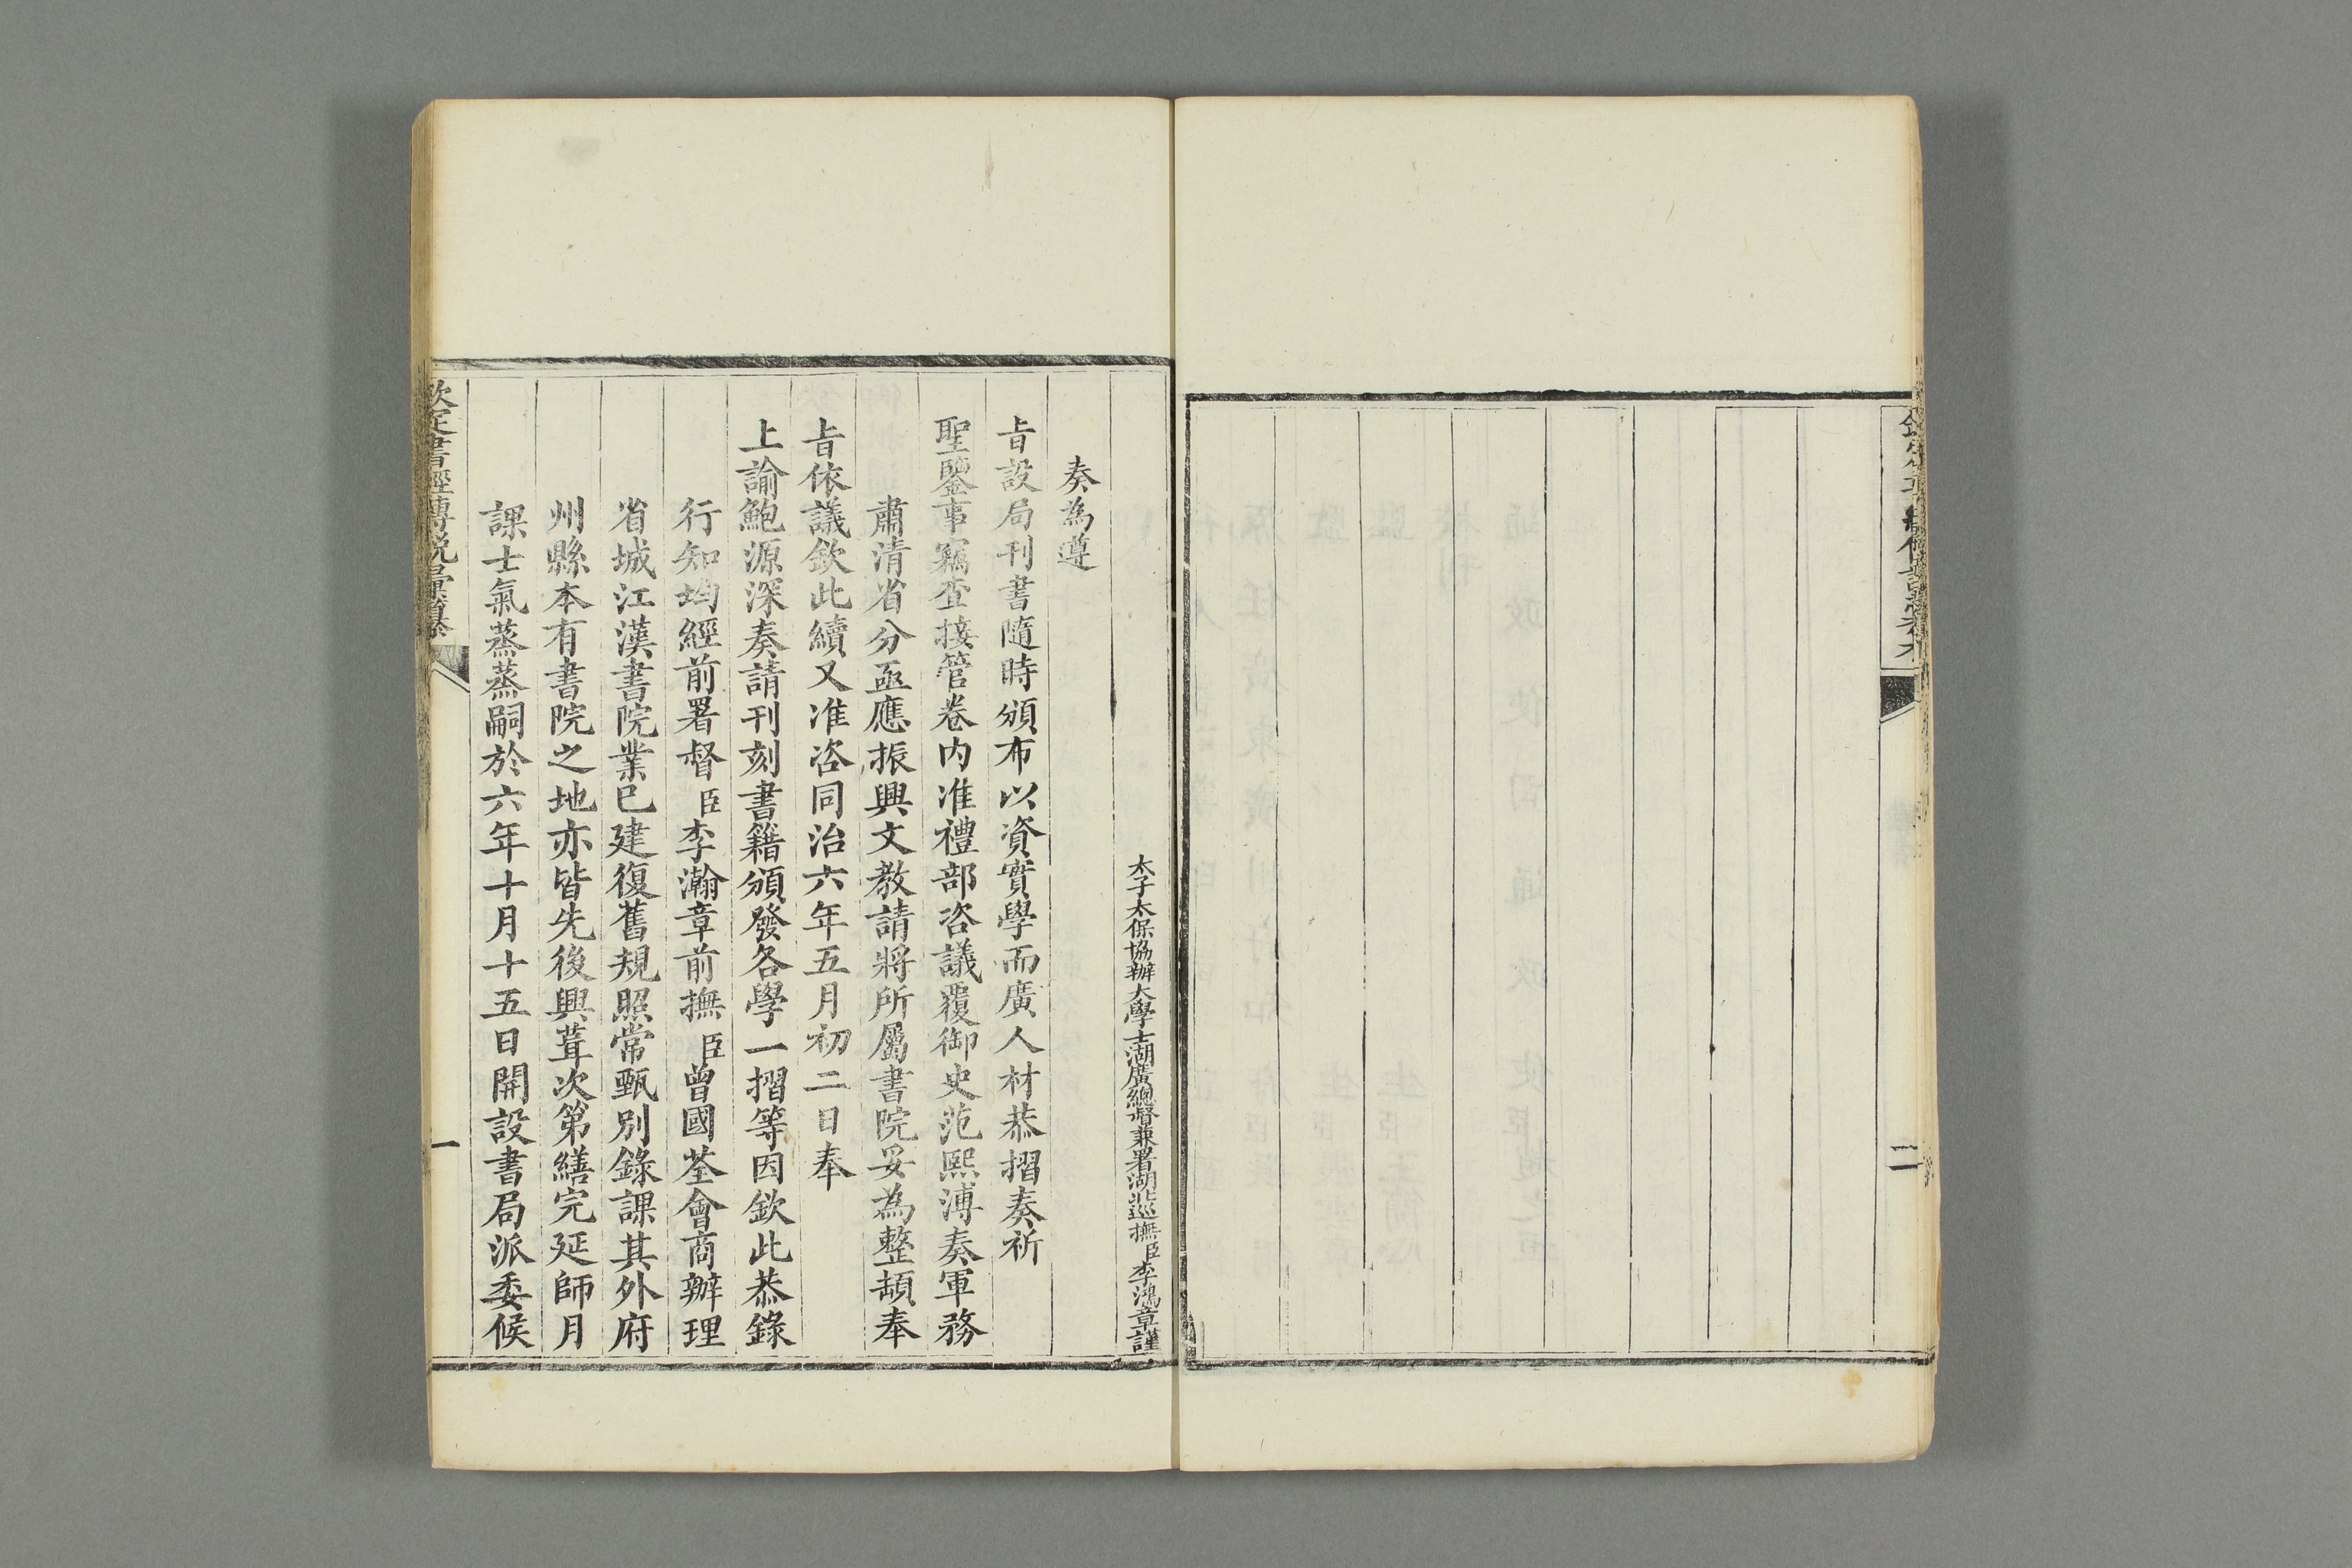 二
太子太保協辦大學士湖廣總督兼署湖北巡撫臣李鴻章謹
奏為遵
旨設局刊書隨時頒布以資實學而廣人材恭摺奏祈
聖鑒事竊查接管卷內准禮部咨議覆御史范熙溥奏軍務
肅清省分亟應振興文教請將所屬書院妥為整頓奉
旨依議欽此續又准咨同治六年五月初二日奉
上諭鮑源深奏請刊刻書籍頒發各學一摺等因欽此恭錄
行知均經前署督臣李瀚章前撫臣曾國荃會商辦理
省城江漢書院業已建復舊規照常甄別錄課其外府
州縣本有書院之地亦皆先後興葺次第繕完延師月
課士氣蒸蒸嗣於六年十月十五日開設書局派委候
欽定書經傳說彙纂
一